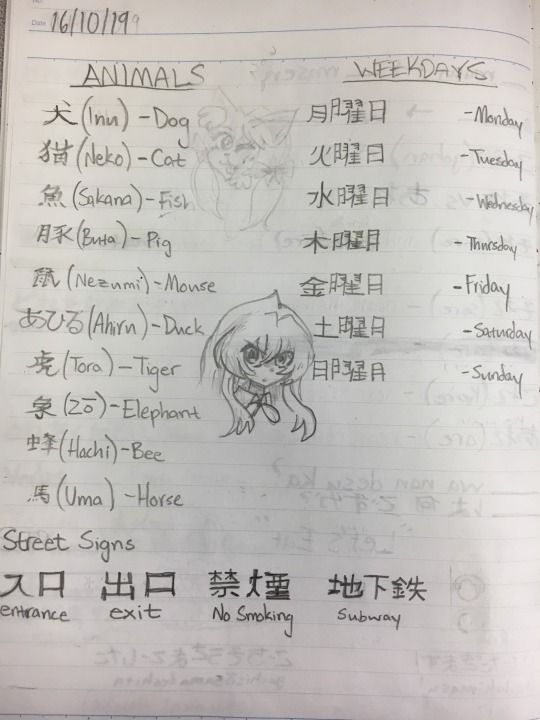 Date 16/10/19
ANIMALS
犬 (Inu) - Dog
猫 (Neko) - Cat
魚 (Sakana) - Fish
豚 (Buta) - Pig
鼠 (Nezumi) - Mouse
あひる (Ahiru) - Duck
虎 (Tora) - Tiger
象 (Zō) - Elephant
蜂 (Hachi) - Bee
馬 (Uma) - Horse
WEEKDAYS
月曜日 - Monday
火曜日 - Tuesday
水曜日 - Wednesday
木曜日 - Thursday
金曜日 - Friday
土曜日 - Saturday
日曜日 - Sunday
Street Signs
入口 出口 禁煙 地下鉄
entrance exit No Smoking Subway